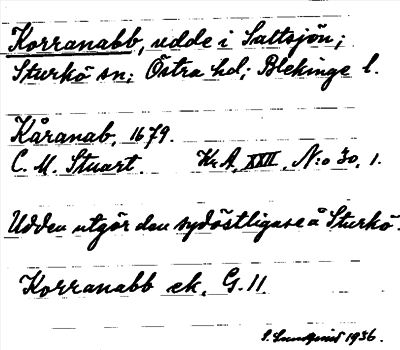 Korranabb, udde i Saltsjön;
Sturkö sn; Östra hd; Blekinge l.
Kåranab, 1679.
C. M. Stuart. KrA, XXII, N:o 30, 1.
Udden utgör den sydöstligase å Sturkö.
Korranabb ek. G. 11
S. Lundquist 1936.